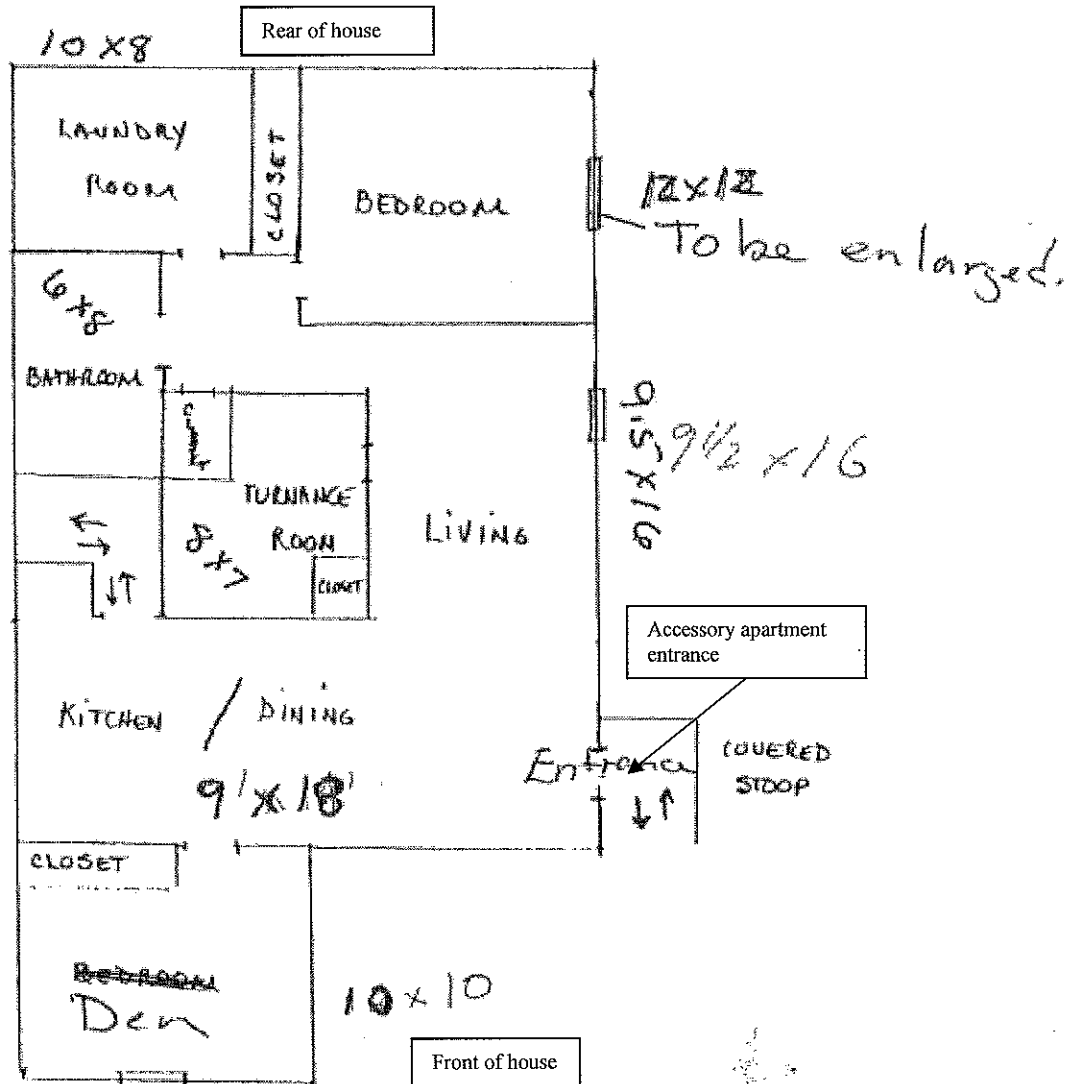 Rear of house
10 x 8
LAUNDRY
ROOM
CLOSET
BEDROOM
12 x 12
To be enlarged.
6 x 8
BATHROOM
9.5' x 16
9 1/2 x 16
TURNANCE
ROOM
8 x 7
CLOSET
LIVING
Accessory apartment
entrance
KITCHEN / DINING
9' x 18'
Entrance
COVERED
STOOP
CLOSET
BEDROOM
Den
10 x 10
Front of house